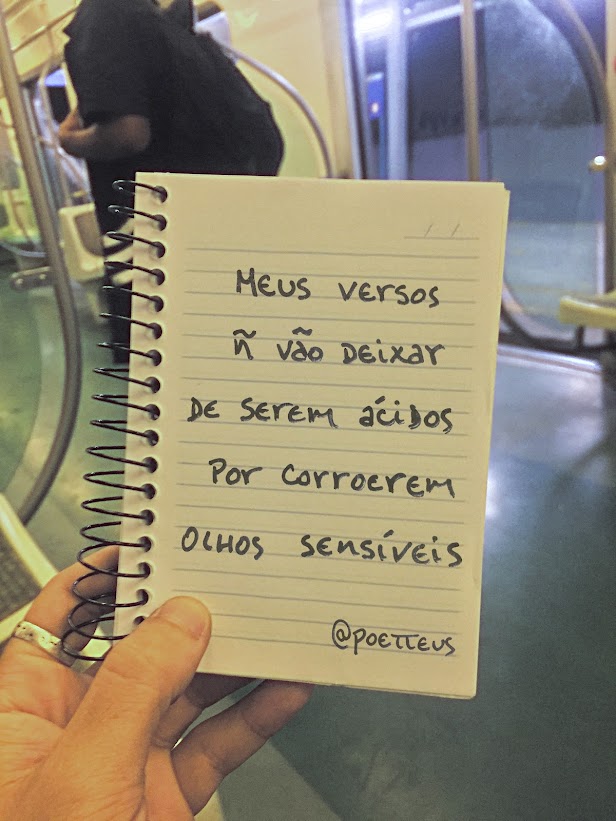 Meus versos
ñ vão deixar
de serem ácidos
por corroerem
olhos sensíveis
@poetteus